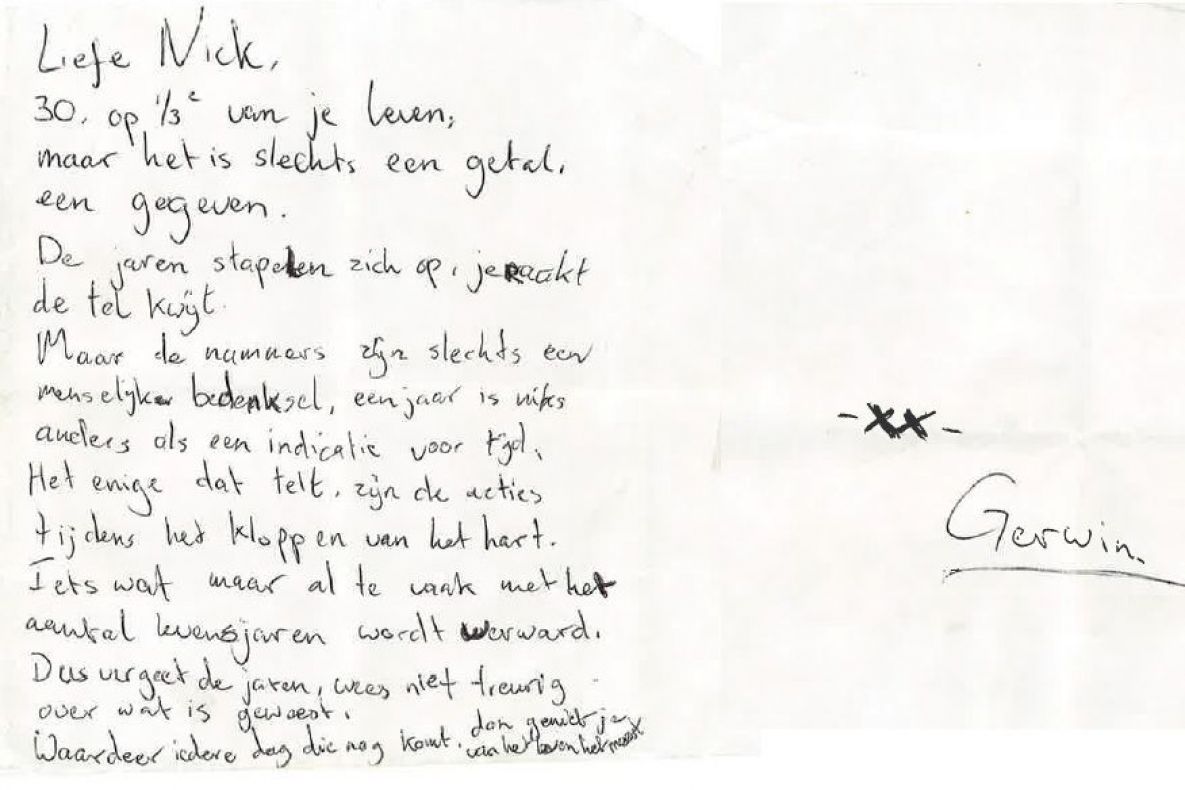 Liefe Nick,
30, op 1/3e van je leven,
maar het is slechts een getal,
een gegeven.
De jaren stapelen zich op, je raakt
de tel kwijt.
Maar de nummers zijn slechts een
menselijke bedenksel, een jaar is niks
anders als een indicatie voor tijd.
Het enige dat telt, zijn de acties
tijdens het kloppen van het hart.
Iets wat maar al te vaak met het
aantal levensjaren wordt verward.
Dus vergeet de jaren, wees niet treurig
over wat is geweest.
Waardeer iedere dag die nog komt, dan geniet je
van het leven het meest
-xx-
Gerwin.